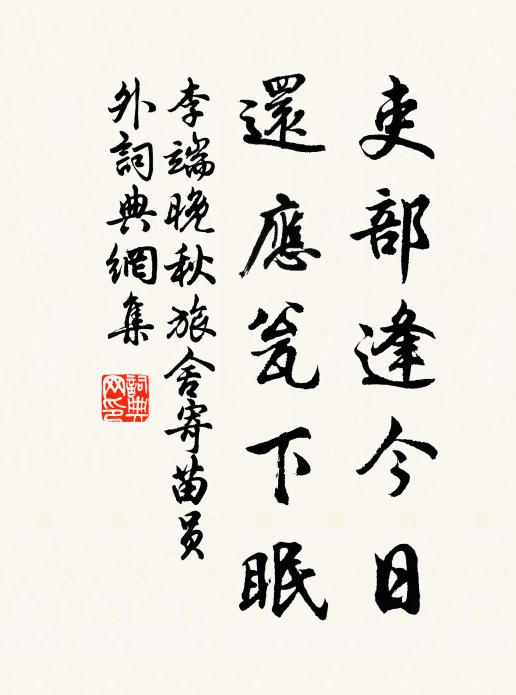 吏部逢今日
還應瓮下眠
李端晚秋旅舍寄苗員
外詞典網集
詞典網印